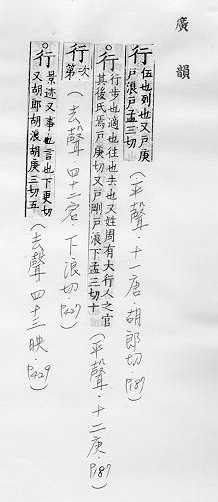 廣韻
行 伍也列也又戶庚戶浪戶孟三切(平聲.十一唐.胡郎切.P187)
○行 行步也適也往也去也又姓周有大行人之官其後氏焉戶庚切又戶剛戶浪下孟三切十(平聲.十二庚.P187)
行 次第(去聲.四十二宕.下浪切.P427)
○行 景迹又事也言也下更切又胡郎胡浪胡庚三切五(去聲 四十三映.P429)